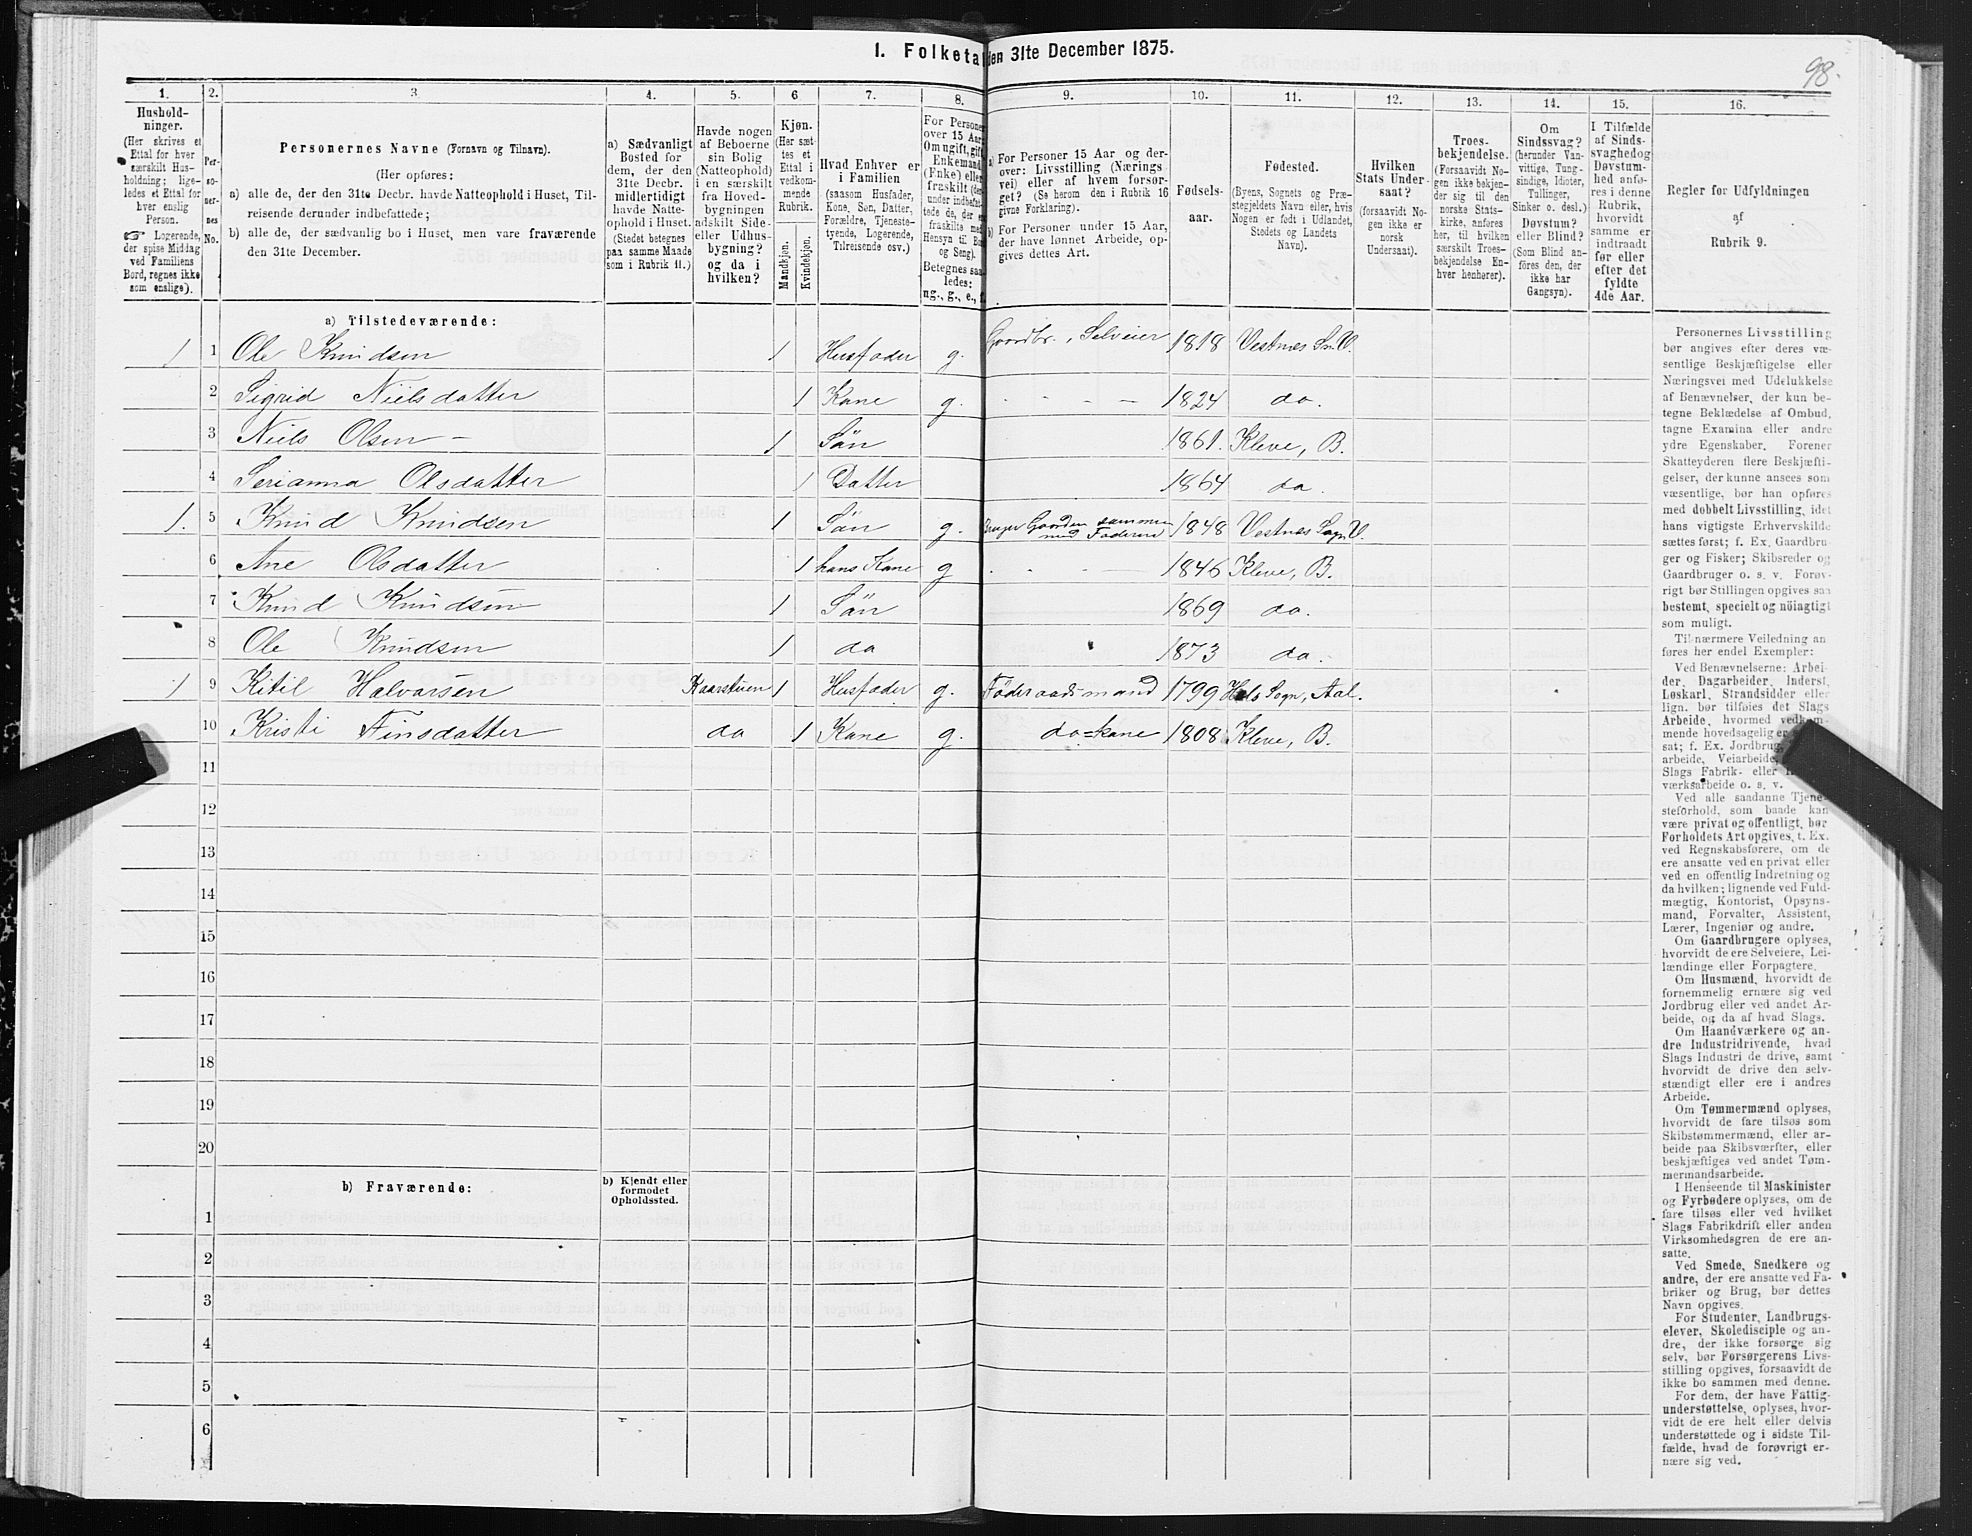 1. Folketal den 31te December 1875.
98.
1. 2. 3. 4. 5. 6 7. 8. 9. 10. 11. 12. 13. 14. 15. 16.
Hushold-
ninger.
(Her skrives et
Ettal for hver
særskilt Hus-
holdning; lige-
ledes et Ettal for
hver enslig
Person.
☞ Logerende,
der spise Middag
ved Familiens
Bord, regnes ikke
som enslige).
Per-
so-
ner-
nes
No.
Personernes Navne (Fornavn og Tilnavn).
(Her opføres:
a) alle de, der den 31te Decbr. havde Natteophold i Huset, Til-
reisende derunder indbefattede;
b) alle de, der sædvanlig bo i Huset, men vare fraværende
den 31te December.
a) Sædvanligt
Bosted for
dem, der den
31te Decbr.
midlertidigt
havde Natte-
ophold i Huset.
(Stedet betegnes
paa samme Maade
som i Rubrik 11.)
Havde nogen
af Beboerne
sin Bolig
(Natteophold)
i en særskilt
fra Hoved-
bygningen
adskilt Side-
eller Udhus-
bygning?
og da i
hvilken?
Kjøn.
(Her sæt-
tes et
Ettal i
vedkom-
mende
Rubrik.
Mandkjøn.
Kvindekjøn.
Hvad Enhver er
i Familien
(saasom Husfader,
Kone, Søn, Datter,
Forældre, Tjeneste-
tyende, Logerende,
Tilreisende osv.)
For Persone
over 15 Aar
Om ugift, gift
Enkemand
(Enke) elle
fraskilt (de
under indbefat-
tede de, der e
fraskilte med
Hensyn til Bo
og Seng).
Betegnes saa
ledes:
ug., g., e., f.
a) For Personer 15 Aar og der-
over: Livsstilling (Nærings-
vei) eller af hvem forsør-
get? (Se herom den i Rubrik 16
givne Forklaring).
b) For Personer under 15 Aar,
der have lønnet Arbeide, op-
gives dettes Art.
Fødsels-
aar.
Fødested.
(Byens, Sognets og Præ-
stegjeldets Navn eller, hvis
Nogen er født i Udlandet,
Stedets og Landets
Navn).
Hvilken
Stats Under-
saat?
(forsaavidt No-
gen ikke er
norsk
Undersaat).
Troes-
bekjendelse.
(Forsaavidt No-
gen ikke bekjen-
der sig til den
norske Stats-
kirke, anføres
her, til hvilken
særskilt Troes-
bekjendelse En-
hver henhører).
Om
Sindssvag?
(herunder Van-
vittige, Tung-
sindige, Idioter,
Tullinger,
Sinker o. desl.)
Døvstum?
eller Blind?
(Som Blind an-
føres den, der
ikke har
Gangsyn).
I Tilfælde
af Sinds-
svaghed og
Døvstum-
hed anfø-
res i denne
Rubrik,
hvorvidt
samme er
indtraadt
før eller
efter det
fyldte
4de Aar.
Regler for Udfyldningen
af
Rubrik 9.
a) Tilstedeværende:
1 1 Ole Knudsen 1 Husfader g. Gaardbr., Selveier 1818 Vestnes Sn. V.
2 Sigrid Nielsdatter 1 Kone g. - - - - 1824 do.
3 Niels Olsen - 1 Søn 1861. Kleve, B.
4 Serianna Olsdatter 1 Datter 1864 do.
1. 5 Knud Knudsen 1 Søn g. Bruger Gaarden sammen med Faderen 1848 Vestnes Sogn V.
6 Ane Olsdatter 1 hans Kone g - - - 1846 Kleve, B.
7 Knud Knudsen 1 Søn 1869 do.
8 Ole Knudsen 1 do 1873 do.
1 9 Kitil Halvorsen Kaarstuen 1 Husfader g. Föderaadsmand 1799 Hols Sogn, Aal.
10 Kristi Finsdatter do 1 Kone g. do=kone 1808 Kleve, B.
11
12
13
14
15
16
17
18
19
20
b) Fraværende:
b) Kjendt eller
formodet
Opholdssted.
1
2
3
4
5
6
Personernes Livsstilling
bør angives efter deres væ-
sentlige Beskjæftigelse eller
Næringsvei med Udelukkelse
af Benævnelser, der kun be-
tegne Beklædelse af Ombud,
tagne Examina eller andre
ydre Egenskaber. Forener
Skatteyderen flere Beskjæfti-
gelser, der kunne ansees som
væsentlige, bør han opføres
med dobbelt Livsstilling, idet
hans vigtigste Erhvervskilde
sættes først; f. Ex. Gaardbru-
ger og Fisker; Skibsreder og
Gaardbruger o. s. v. Forøv-
rigt bør Stillingen opgives saa
bestemt, specielt og nøiagtigt
som muligt.
Til nærmere Veiledning an
føres her endel Exempler:
Ved Benævnelserne: Arbei-
der, Dagarbeider, Inderst,
Løskarl, Strandsidder eller
lign. bør tilføies det Slags
Arbeide, hvormed vedkom-
mende hovedsagelig er
sat; f. Ex. Jordbrug,
arbeide, Veiarbeide,
Slags Fabrik- eller
værksarbeide o. s. v.
Ved alle saadanne Tjene-
steforhold, som baade kan
være privat og offentligt, bør
Forholdets Art opgives, t. Ex.
ved Regnskabsførere, om de
ere ansatte ved en privat eller
ved en offentlig Indretning og
da hvilken; lignende ved Fuld-
mægtig, Kontorist, Opsyns-
mand, Forvalter, Assistent,
Lærer, Ingeniør og andre.
Om Gaardbrugere oplyses,
hvorvidt de ere Selveiere, Lei-
lændinge eller Forpagtere.
Om Husmænd, hvorvidt de
fornemmelig ernære sig ved
Jordbrug eller ved andet Ar-
beide, og da af hvad Slags.
Om Haandværkere og an-
dre Industridrivende, hvad
Slags Industri de drive, samt
hvorvidt de drive den selv-
stændigt eller ere i andres
Arbeide.
Om Tømmermænd oplyses,
hvorvidt de fare tilsøs som
Skibstømmermænd, eller ar-
beide paa Skibsværfter, eller
beskjæftiges ved andet Tøm-
mermandsarbeide.
I Henseende til Maskinister
og Fyrbødere oplyses, om de
fare tilsøs eller ved hvilket
Slags Fabrikdrift eller anden
Virksomhedsgren de ere an-
satte.
Ved Smede, Snedkere og
andre, der ere ansatte ved Fa-
briker og Brug, bør dettes
Navn opgives.
For Studenter, Landbrugs-
elever, Skoledisciple og an-
dre, der ikke forsørge sig
selv, bør Forsørgerens Livs-
stilling opgives, forsaavidt de
ikke bo sammen med denne.
For dem, der have Fattig-
understøttelse, oplyses, hvor-
vidt de ere helt eller delvis
understøttede og i sidste Til-
fælde, hvad de forøvrigt er-
nære sig ved.